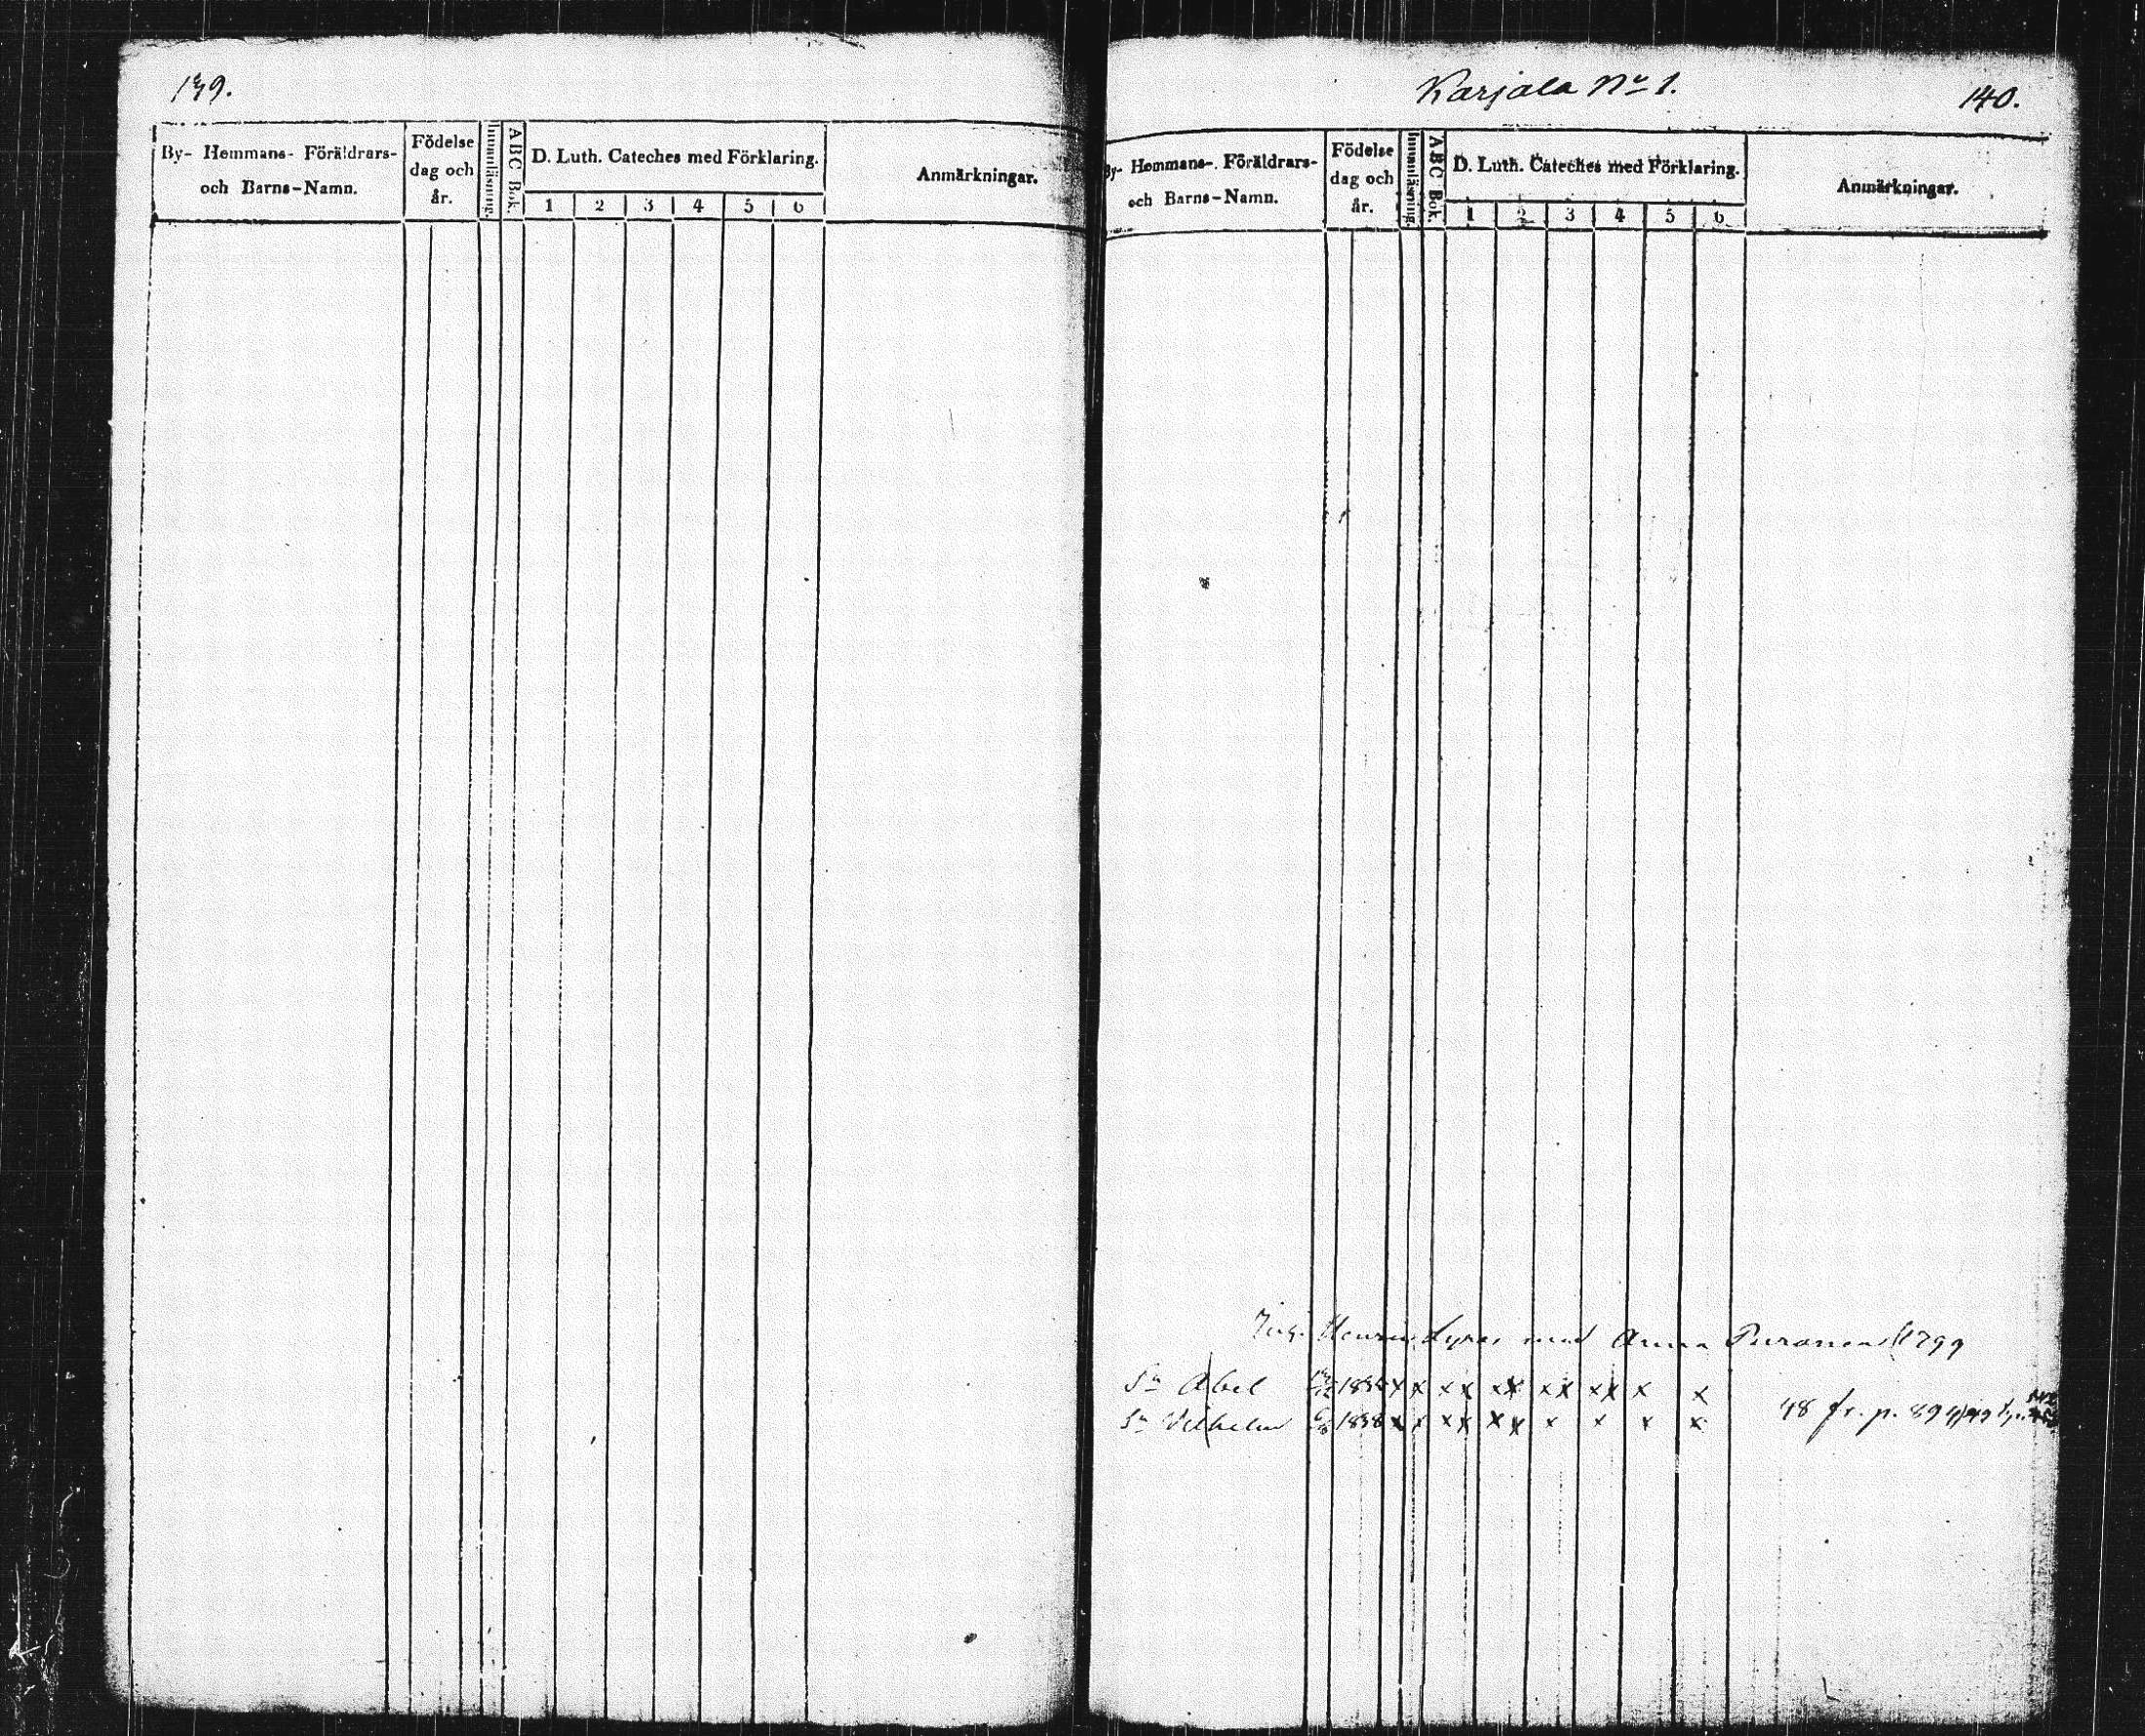 139.
By- Hemmans- Föräldrars- och Barns-Namn.
Födelse dag och år.
Innanläsning.
ABC Bok.
D. Luth. Cateches med Förklaring.
1 2 3 4 5 6
Anmärkningar.
Karjala No 1.
140.
By- Hemmans- Föräldrars- och Barns-Namn.
Födelse dag och år.
Innanläsning.
ABC Bok.
D. Luth. Cateches med Förklaring.
1 2 3 4 5 6
Anmärkningar.
Lyra med Anna Puronen 1799
Sn Abel x x x x x x x x x x x x
Sn Vilhelm 1838 x x x x x x x x x x
48 fr. p. 89